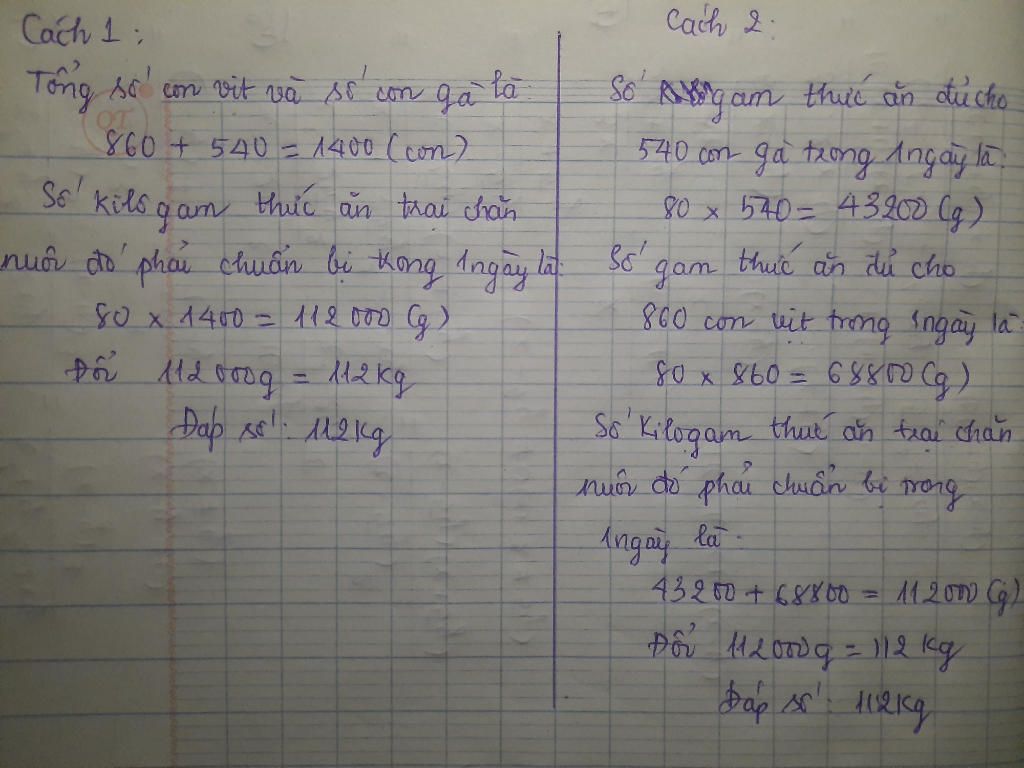 Cách 1:
Tổng số con vịt và số con gà là
860 + 540 = 1400 (con)
Số kilogam thức ăn trại chăn
nuôi đó phải chuẩn bị trong 1 ngày là:
80 x 1400 = 112000 (g)
Đổi 112000g = 112kg
Đáp số: 112kg
Cách 2:
Số gam thức ăn đủ cho
540 con gà trong 1 ngày là:
80 x 540 = 43200 (g)
Số gam thức ăn đủ cho
860 con vịt trong 1 ngày là:
80 x 860 = 68800 (g)
Số kilogam thức ăn trại chăn
nuôi đó phải chuẩn bị trong
1 ngày là:
43200 + 68800 = 112000 (g)
Đổi 112000g = 112 kg
Đáp số: 112kg